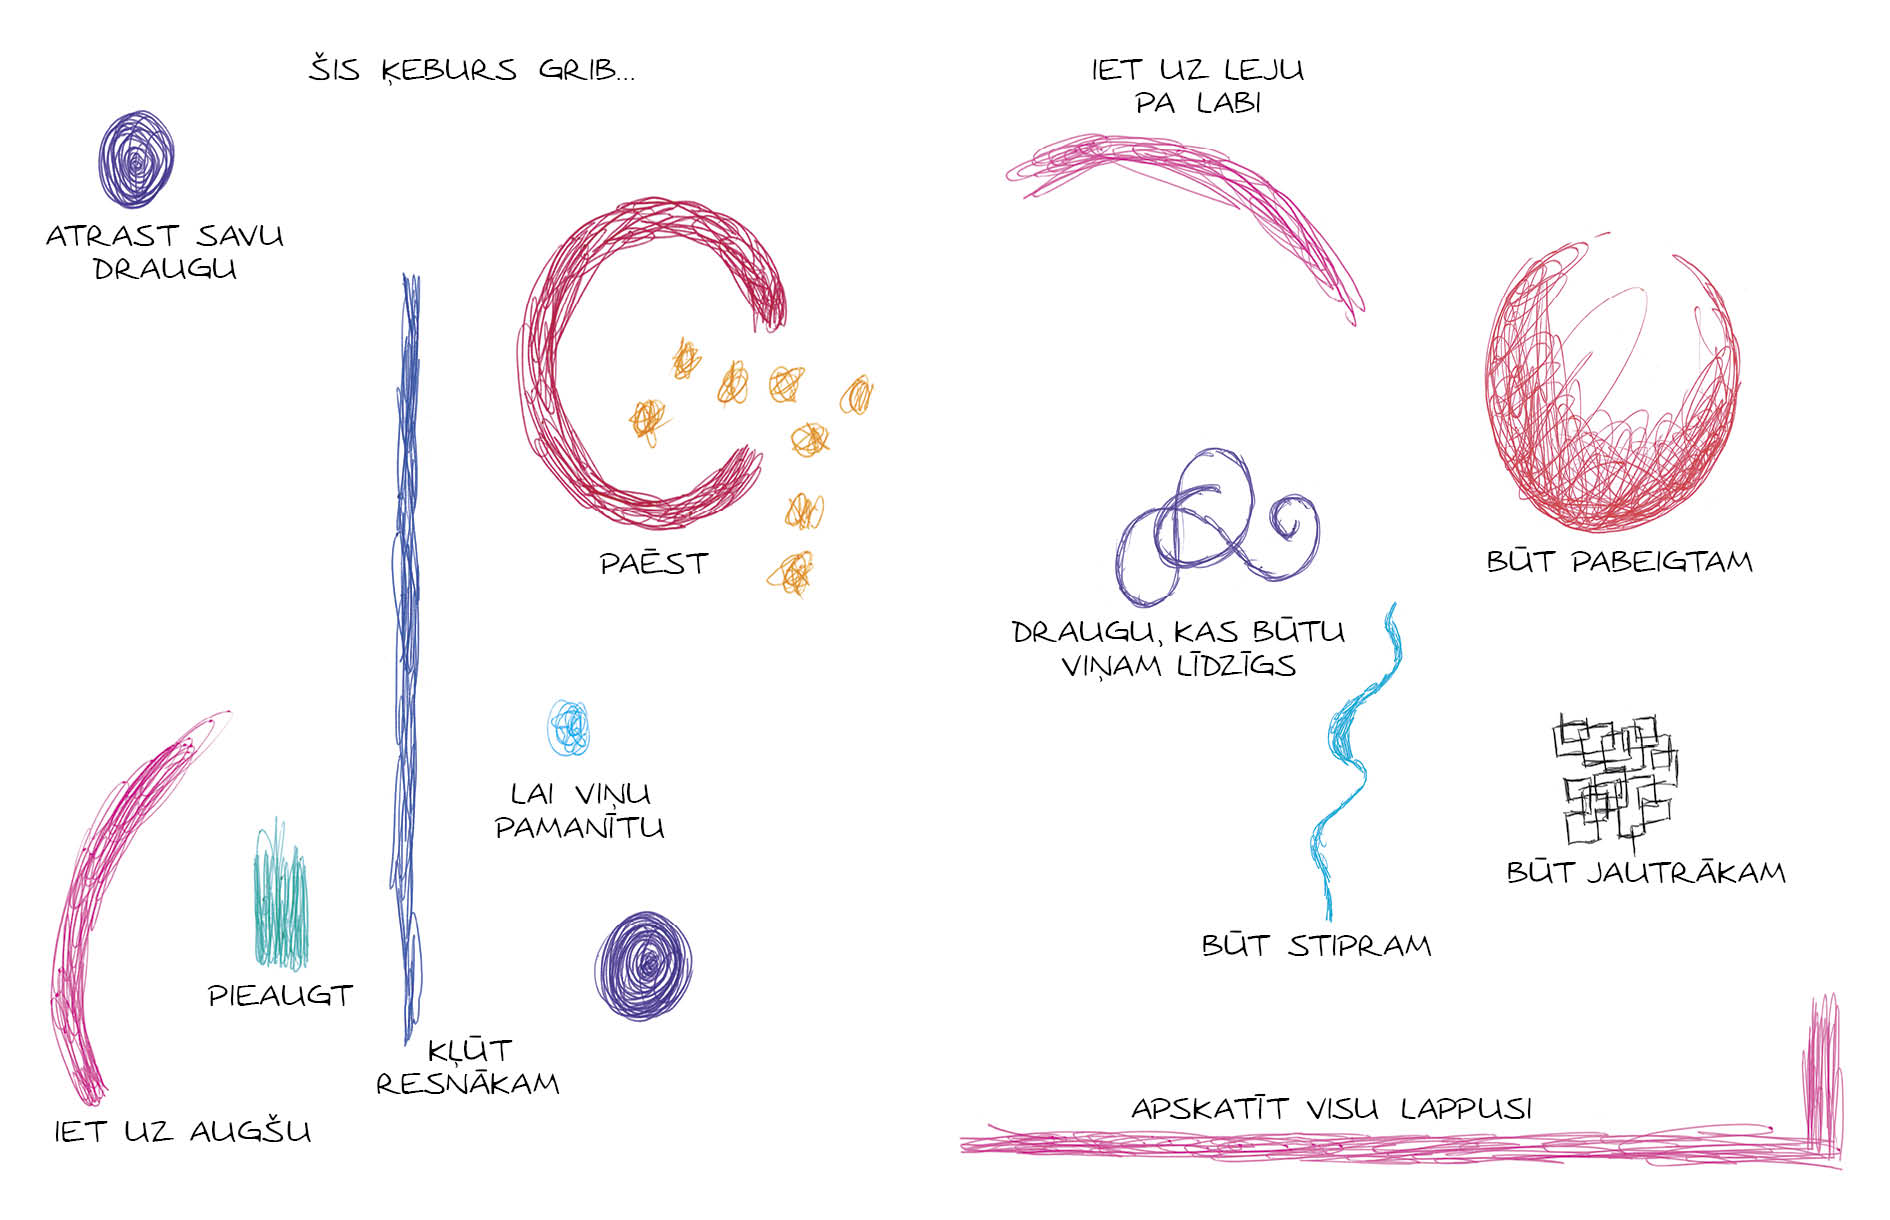 ŠIS ĶEBURS GRIB...
ATRAST SAVU
DRAUGU
PAĒST
LAI VIŅU
PAMANĪTU
PIEAUGT
KĻŪT
RESNĀKAM
IET UZ AUGŠU
IET UZ LEJU
PA LABI
BŪT PABEIGTAM
DRAUGU, KAS BŪTU
VIŅAM LĪDZĪGS
BŪT JAUTRĀKAM
BŪT STIPRAM
APSKATĪT VISU LAPPUSI